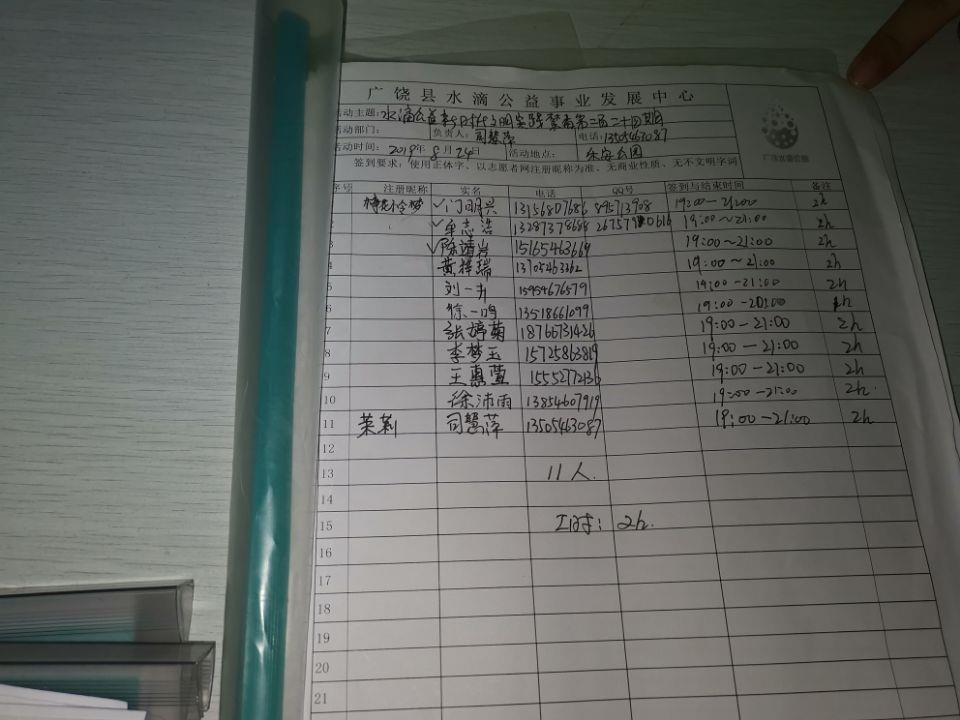 广饶县水滴公益事业发展中心
活动主题：水滴公益新时代文明实践繁育第一百二十四期
活动部门： 负责人：司慧萍 电话：13505463087
活动时间：2019年8月24日 活动地点：乐安公园
签到要求：使用正体字、以志愿者网注册昵称为准、无商业性质、无不文明字词
广饶水滴公益
序号 注册昵称 实名 电话 QQ号 签到与结束时间 备注
门明兴 13156807686 895713908 19:00-21:00 2h
2 ✓牟志浩 13287378688 19:00~21:00 2h
3 ✓陈靖岩 15165463669 19:00~21:00 2h
4 黄梓瑞 13705463362 19:00~21:00 2h
5 刘一 15954676579 19:00-21:00 2h
6 徐一鸣 13518661099 19:00-20:00
7 张婷菊 18766731426 19:00-21:00 2h
8 李梦玉 15725863819 19:00-21:00 2h
9 王惠萱 15552772136 19:00-21:00 2h
10 徐沛雨 13854607919 19:00-21:00 2h.
11 茉莉 司慧萍 13505463087 19:00-21:00 2h
12
13 11人.
14
15 工时：2h.
16
17
18
19
20
21